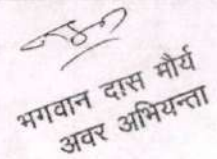 भगवान दास मौर्य
अवर अभियन्ता